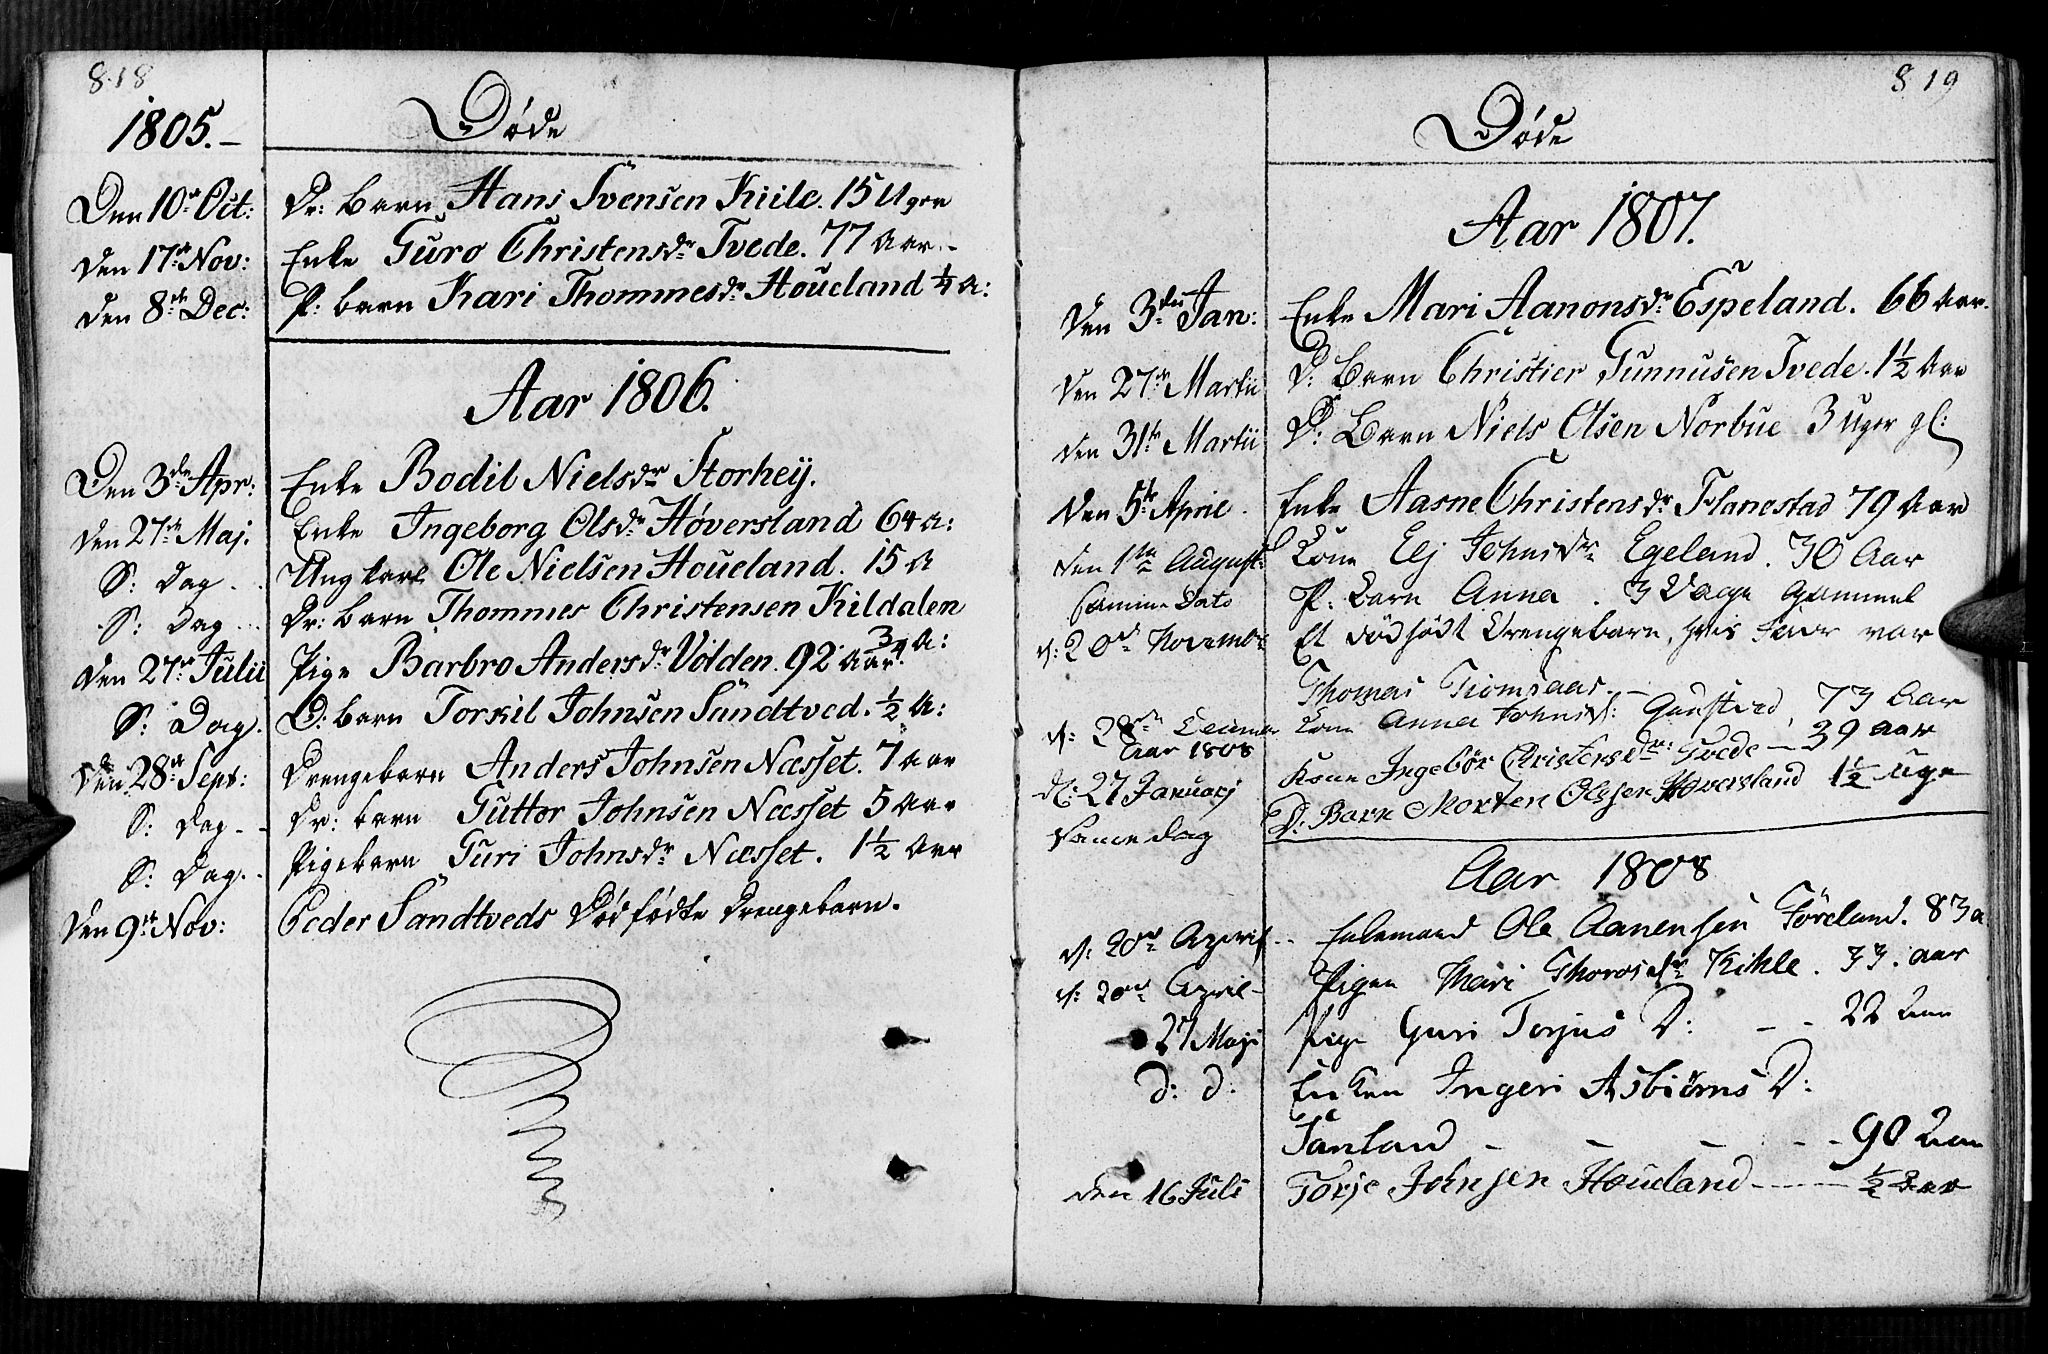 818
1805.-
Døde
Den 10de Oct: Dr: barn Hans Svensen Kiile. 15 Uger
den 17de Nov: Enke Guro Christensdr Tvede. 77 Aar.-
den 8de Dec: P: barn Kari Thommesdr Houeland ¼ A:
Aar 1806.
Den 3de Apr: Enke Bodil Nielsdr Storheÿ.
den 27de Maj. Enke Ingeborg Olsdr Høversland 64 A:
S: Dag . . Ungkarl Ole Nielsen Houeland. 15 A
S: Dag . . . Dr: barn Thommes Christensen Kildalen ¾ A:
den 27de Julii Pige Barbro Andersdr Volden. 92 Aar.
S: Dag. D: barn Torkil Johnsen Sandtved. ½ A:
den 28de Sept: Drengebarn Anders Johnsen Næsset. 7 Aar
S: Dag - - Dr: barn Guttor Johnsen Næsset 5 Aar
S: Dag. . Pigebarn Guri Johnsdr Næsset. 1½ Aar
den 9de Nov: Peder Sandtveds Dødfødte Drengebarn.
819
Døde
Aar 1807.
den 3die Jan: Enke Mari Aanonsdr Espeland. 66 Aar.
den 27de Martii D: Barn Christier Gunnusen Tvede. 1½ Aar
den 31te Martii D: Barn Niels Olsen Norbue 3 Uger gl:
den 5te April. Enke Aasne Christensdr Flanestad 79 Aar
den 1ste August: Kone Elj Johnsdr Egeland. 30 Aar
samme Dato P: Barn Anna. 3 Dage gammel
d: 20de November Et dödfödt Drengebarn, hvis Fader var
Thomas
d: 28de Kone Anna Johnsd: 73 Aar
Aar 1808
d: 27 Januarj Kone Ingebör Christensdr: Tvede - 39 aar
Samme dag D: Barn Morten Olssen Høversland 1½ uge
Aar 1808
d: 20de April - - Enkemand Ole Aanensen Föreland. 83 a
d: 20de April - Pigen Mari Thorosdr Kihle. 33. aar
27 Maji Pige Guri Torjus D: - - 22 Aar
d: d: Enken Ingeri Asbiörns D:
- - - - - 90 Aar
den 16 Juli Torje Johnsen Houeland - - - - - ½ Aar